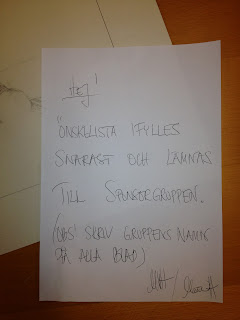 Hej!
"ÖNSKELISTA IFYLLES
SNARAST OCH LÄMNAS
TILL SPONSORGRUPPEN.
(OBS! SKRIV GRUPPENS NAMN
PÅ ALLA BLAD)